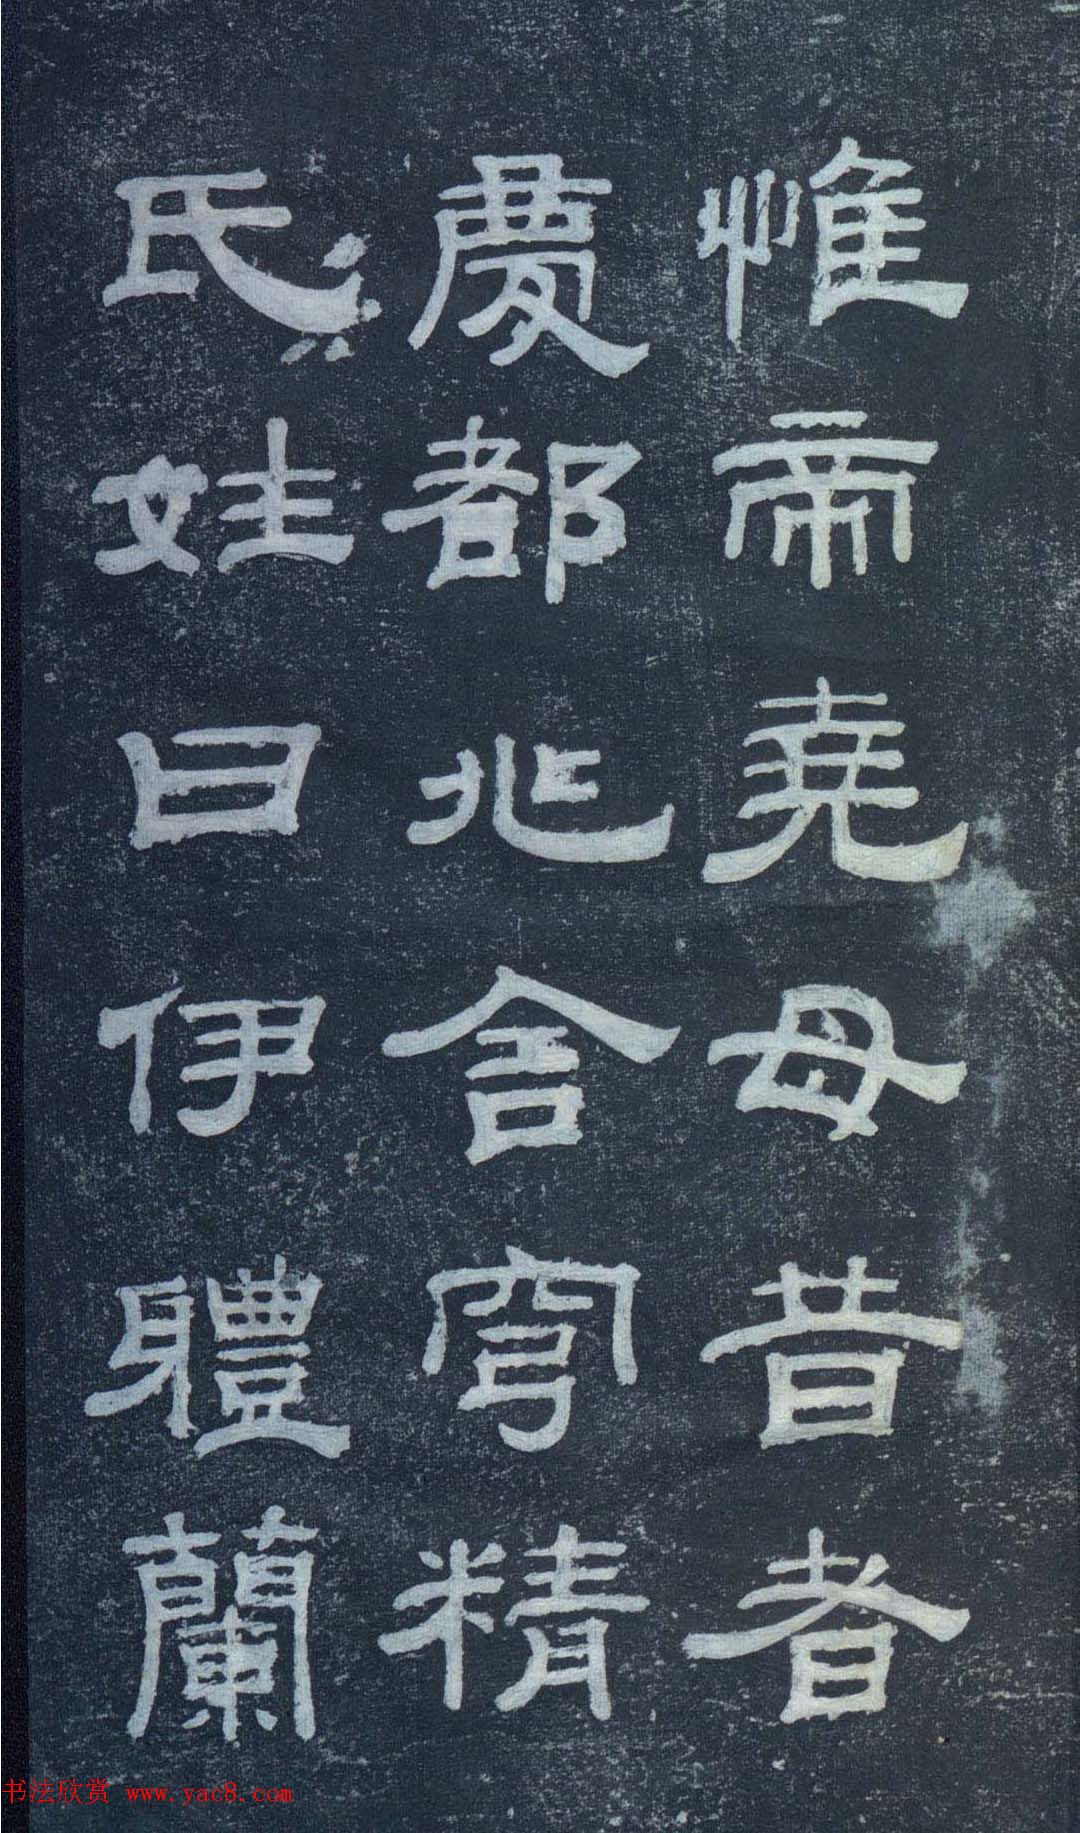 惟帝堯母昔者
慶都兆舍穹精
氏姓曰伊體蘭
书法欣赏 www.yac8.com